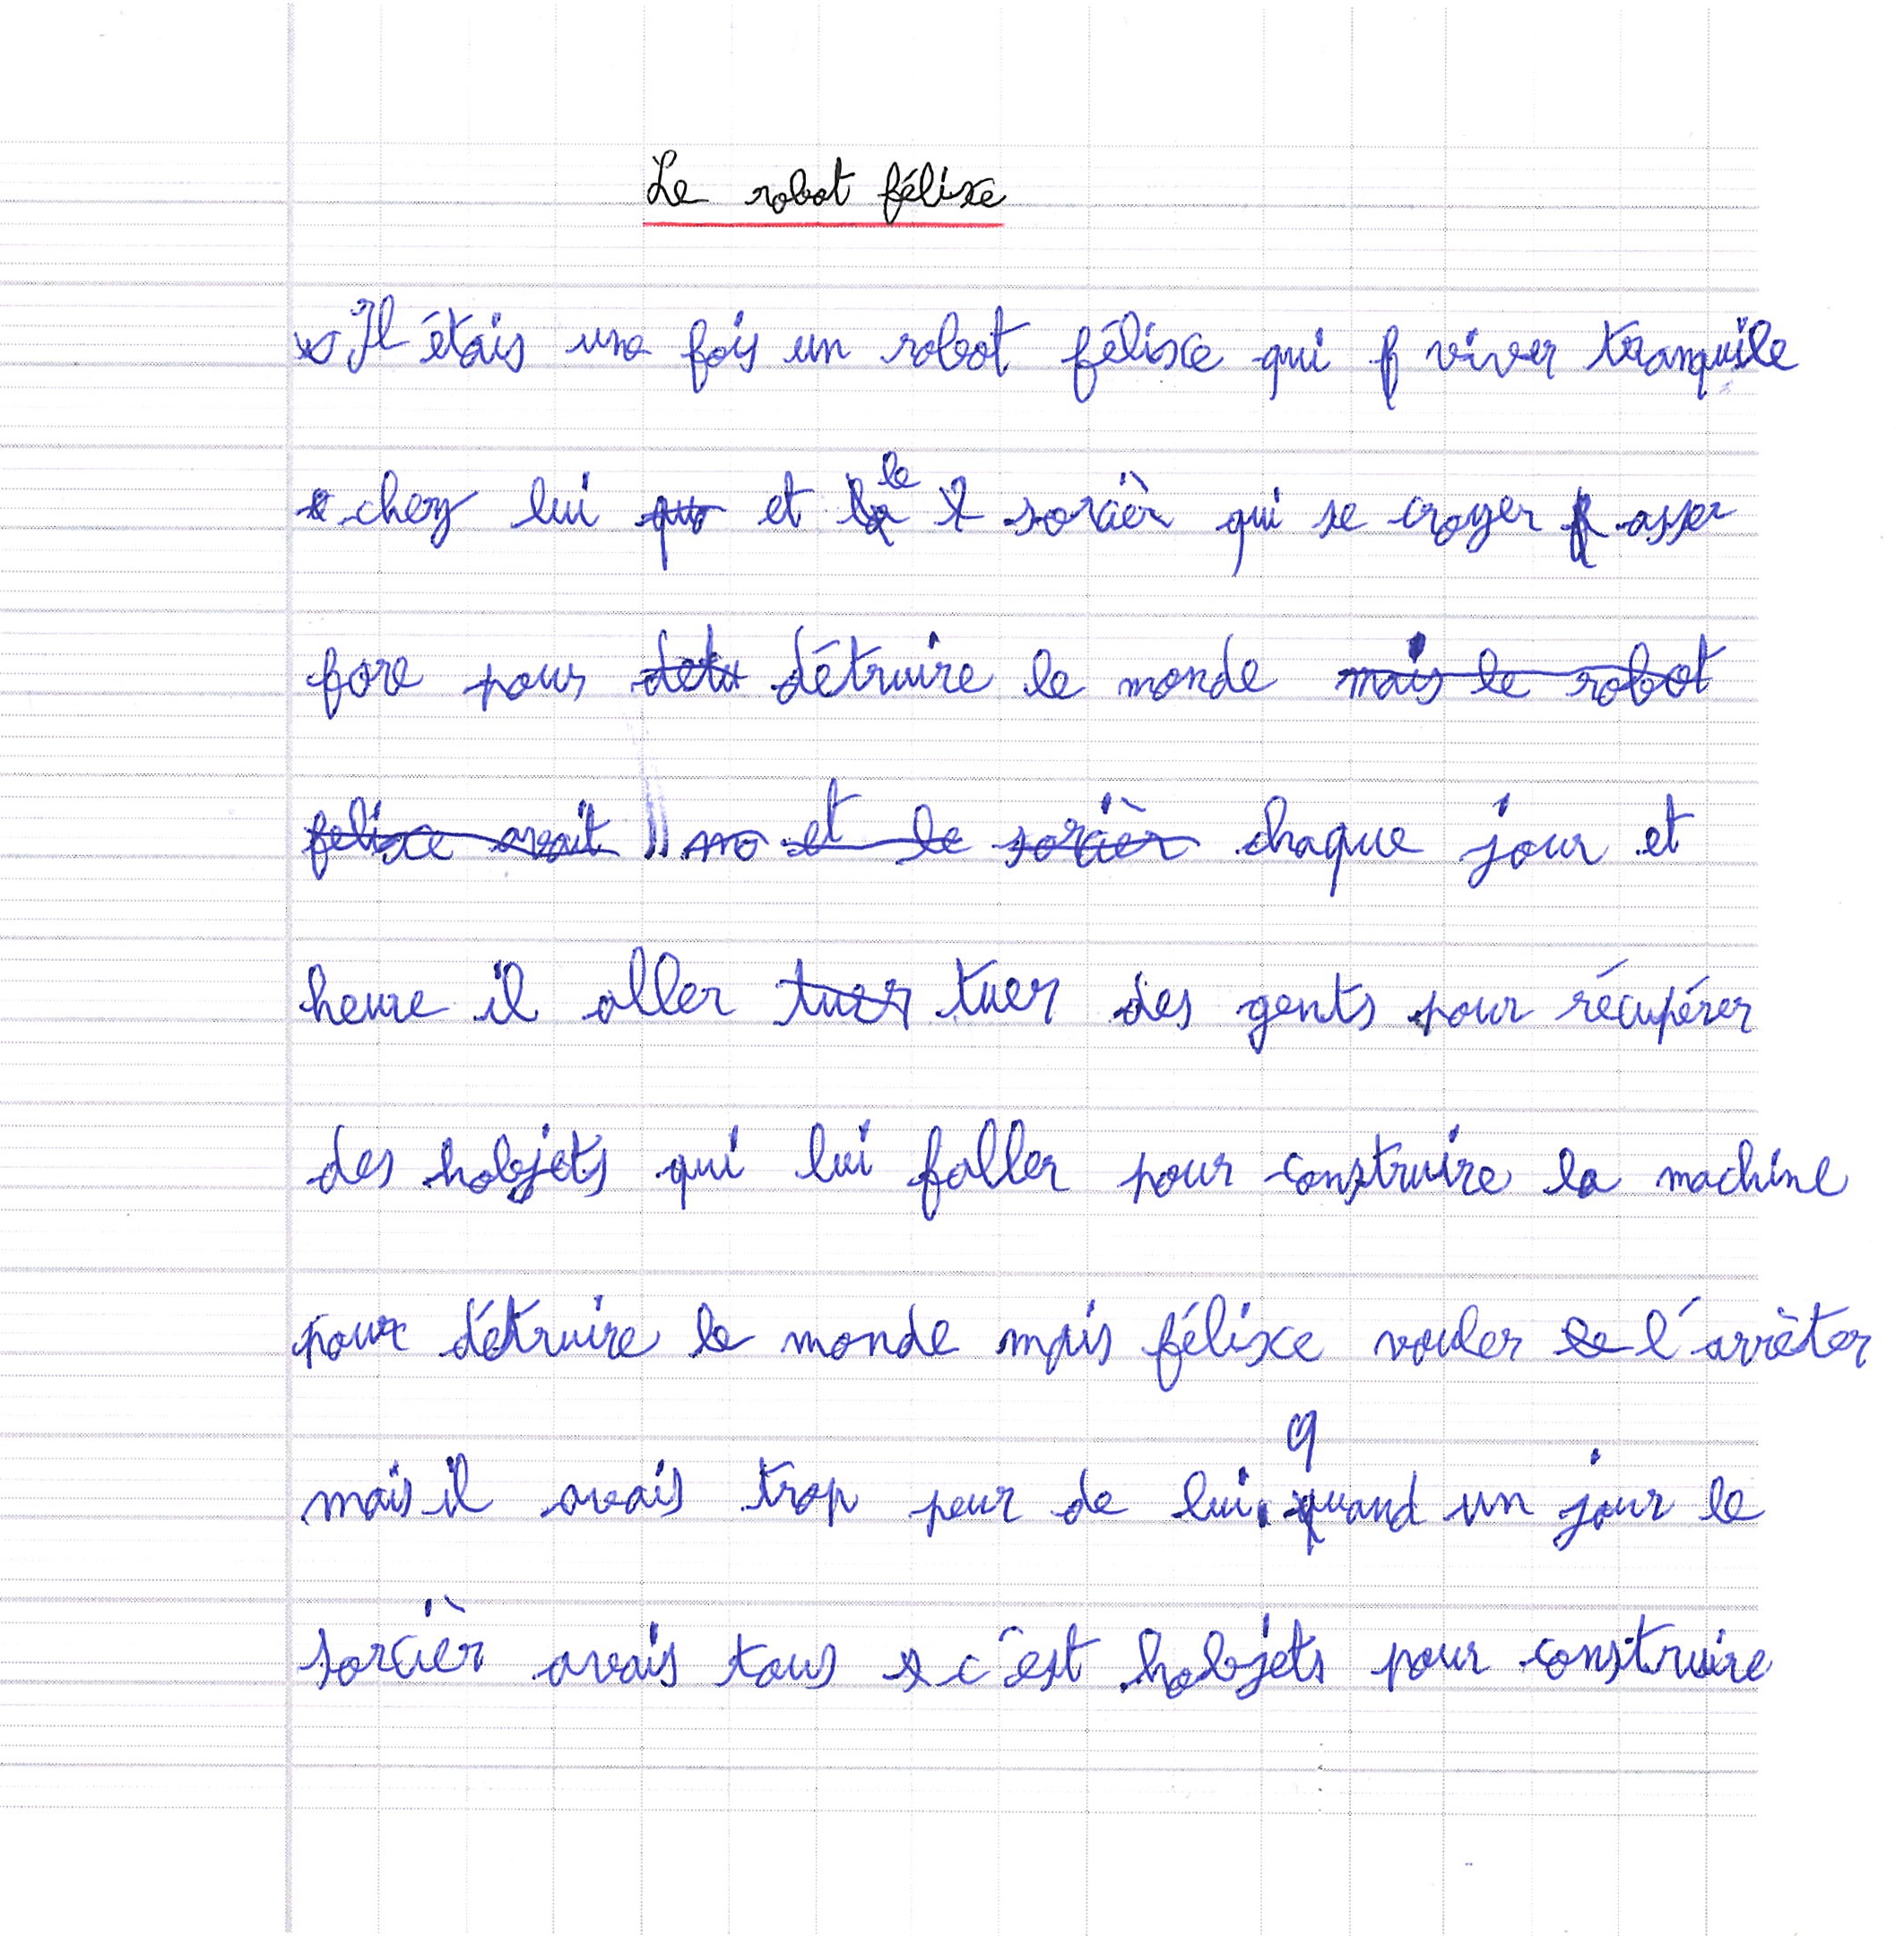 Le robot félixe
Il étais une fois un robot félixe qui viver tranquile
chez lui et le sorcièr qui se croyer asser
fore pour détruire le monde mais le robot
felixe avait et le sorcièr chaque jour et
heure il aller tuer tuer des gents pour récupérer
des hobjets qui lui faller pour construire la machine
pour détruire le monde mais félixe vouler l'arrèter
mais il avais trop peur de lui. quand un jour le
sorcièr avais tous c'est hobjets pour construire